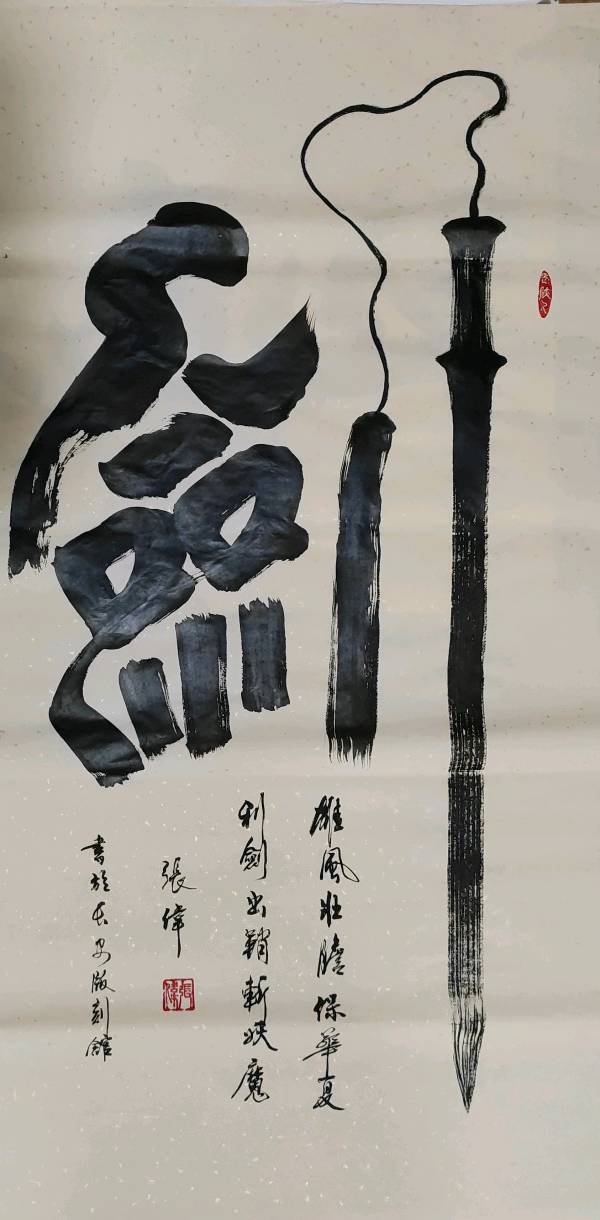 劍
雄風壯膽保華夏
利劍出鞘斬妖魔
張偉
張偉
書於長安版刻館